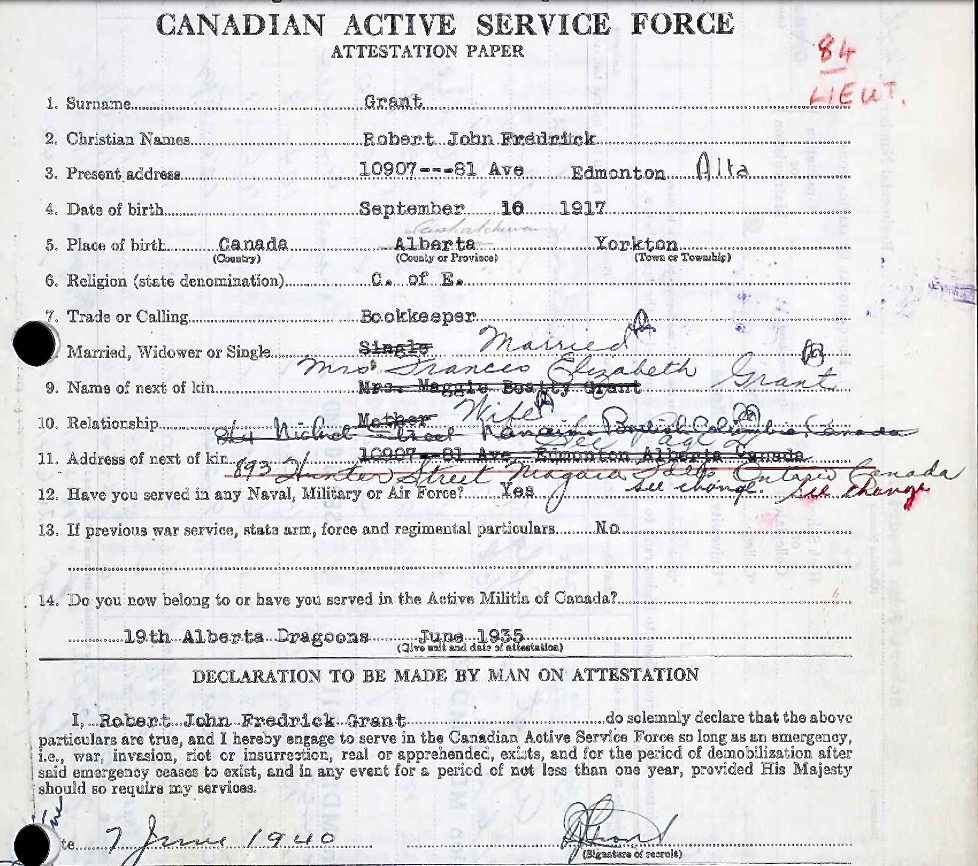 CANADIAN ACTIVE SERVICE FORCE
ATTESTATION PAPER
84
LIEUT.
1. Surname Grant
2. Christian Names Robert John Fredrick
3. Present address 10907---81 Ave Edmonton Alta
4. Date of birth September 10 1917
Saskatchewan
5. Place of birth Canada Alberta Yorkton
(Country) (County or Province) (Town or Township)
6. Religion (state denomination) C. of E.
7. Trade or Calling Bookkeeper
8. Married, Widower or Single Single Married
Mrs Frances Elizabeth Grant
9. Name of next of kin Mrs. Maggie Beatty Grant
10. Relationship Mother Wife
Nichol Street Nanaimo British Columbia, Canada
See Page 4
11. Address of next of kin 10907--81 Ave Edmonton Alberta Canada
893 Hunter Street Niagara Falls Ontario Canada
12. Have you served in any Naval, Military or Air Force? Yes see change. See change
13. If previous war service, state arm, force and regimental particulars No
14. Do you now belong to or have you served in the Active Militia of Canada?
19th Alberta Dragoons June 1935
(Give unit and date of attestation)
DECLARATION TO BE MADE BY MAN ON ATTESTATION
I, Robert John Fredrick Grant do solemnly declare that the above
particulars are true, and I hereby engage to serve in the Canadian Active Service Force so long as an emergency,
i.e., war, invasion, riot or insurrection, real or apprehended, exists, and for the period of demobilization after
said emergency ceases to exist, and in any event for a period of not less than one year, provided His Majesty
should so require my services.
te 7 June 1940
(Signature of recruit)